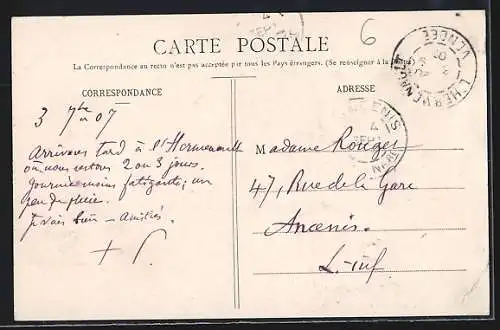 6
CARTE POSTALE
La Correspondance au recto n'est pas acceptée par tous les Pays étrangers. (Se renseigner à la Poste
CORRESPONDANCE
ADRESSE
3 7bre 07
Arrivons tard à l'Hermenault
où nous restons 2 ou 3 jours.
fatigante; un
peu de pluie.
Je vais bien — Amitiés.
Madame Rouger
47, Rue de la Gare
Ancenis
L. Inf
L'HERMENAULT
VENDÉE